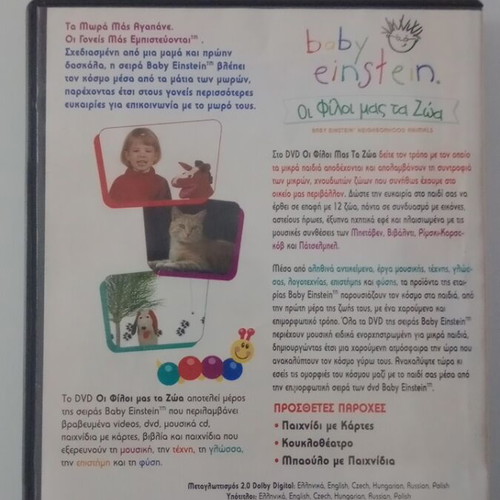 Τα Μωρά Μάς Αγαπάνε.
Οι Γονείς Μάς Εμπιστεύονται™.
Σχεδιασμένη από μια μαμά και πρώην
δασκάλα, η σειρά Baby Einstein™ βλέπει
τον κόσμο μέσα από τα μάτια των μωρών,
παρέχοντας έτσι στους γονείς περισσότερες
ευκαιρίες για επικοινωνία με το μωρό τους.
baby
einstein.
Οι Φίλοι μας τα Ζώα
BABY EINSTEIN: NEIGHBORHOOD ANIMALS
Στο DVD Οι Φίλοι Μας Τα Ζώα δείτε τον τρόπο με τον οποίο
τα μικρά παιδιά αποδέχονται και απολαμβάνουν τη συντροφιά
των μικρών, χνουδωτών ζώων που συνήθως έχουμε στο
οικείο μας περιβάλλον. Δώστε την ευκαιρία στο παιδί σας να
έρθει σε επαφή με 12 ζώα, πάντα σε συνδυασμό με εικόνες,
αστείους ήρωες, έξυπνα ηχητικά εφέ και πλαισιωμένα με τις
μουσικές συνθέσεις των Μπετόβεν, Βιβάλντι, Ρίμσκι-Κορσα-
κόβ και Πότσελμπελ.
Μέσα από αληθινά αντικείμενα, έργα μουσικής, τέχνης, γλώσ-
σας, λογοτεχνίας, επιστήμης και φύσης, τα προϊόντα της εται-
ρίας Baby Einstein™ παρουσιάζουν τον κόσμο στα παιδιά, από
την πρώτη μέρα της ζωής τους, με ένα χαρούμενο και
επιμορφωτικό τρόπο. Όλα τα DVD της σειράς Baby Einstein™
περιέχουν μουσική ειδικά ενορχηστρωμένη για μικρά παιδιά,
δημιουργώντας έτσι μια χαρούμενη ατμόσφαιρα την ώρα που
ανακαλύπτουν τον κόσμο γύρω τους. Ανακαλύψτε τώρα κι
εσείς τις ομορφιές του κόσμου μαζί με το παιδί σας μέσα από
την επιμορφωτική σειρά των dvd Baby Einstein™.
Το DVD Οι Φίλοι μας τα Ζώα αποτελεί μέρος
της σειράς Baby Einstein™ που περιλαμβάνει
βραβευμένα videos, dvd, μουσικά cd,
παιχνίδια με κάρτες, βιβλία και παιχνίδια που
εξερευνούν τη μουσική, την τέχνη, τη γλώσσα,
την επιστήμη και τη φύση.
ΠΡΟΣΘΕΤΕΣ ΠΑΡΟΧΕΣ
• Παιχνίδι με Κάρτες
• Κουκλοθέατρο
• Μπαούλο με Παιχνίδια
Μεταγλωττισμός 2.0 Dolby Digital: Ελληνικά, English, Czech, Hungarian, Russian, Polish
Υπότιτλοι: Ελληνικά, English, Czech, Hungarian, Russian, Polish